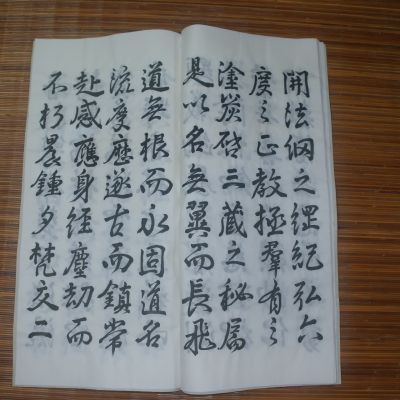 開法網之綱紀弘六
度之正教拯羣有之
塗炭啓三藏之秘扃
是以名無翼而長飛
道無根而永固道名
流慶歷遂古而鎮常
赴感應身經塵劫而
不朽晨鍾夕梵交二